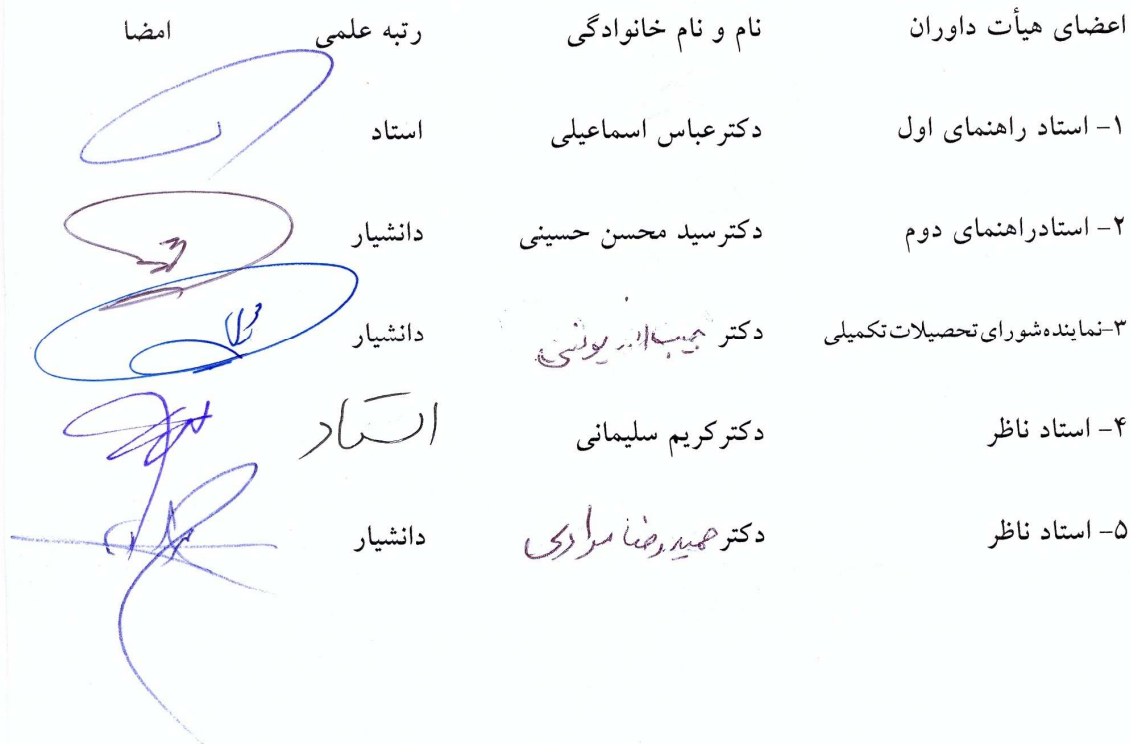 اعضای هیأت داوران نام و نام خانوادگی رتبه علمی امضا
۱- استاد راهنمای اول دکترعباس اسماعیلی استاد
۲- استادراهنمای دوم دکترسید محسن حسینی دانشیار
۳-نماینده‌شورای‌تحصیلات‌تکمیلی دکتر یونسی دانشیار
۴- استاد ناظر دکترکریم سلیمانی استاد
۵- استاد ناظر دکتر حمیدرضا مرادی دانشیار